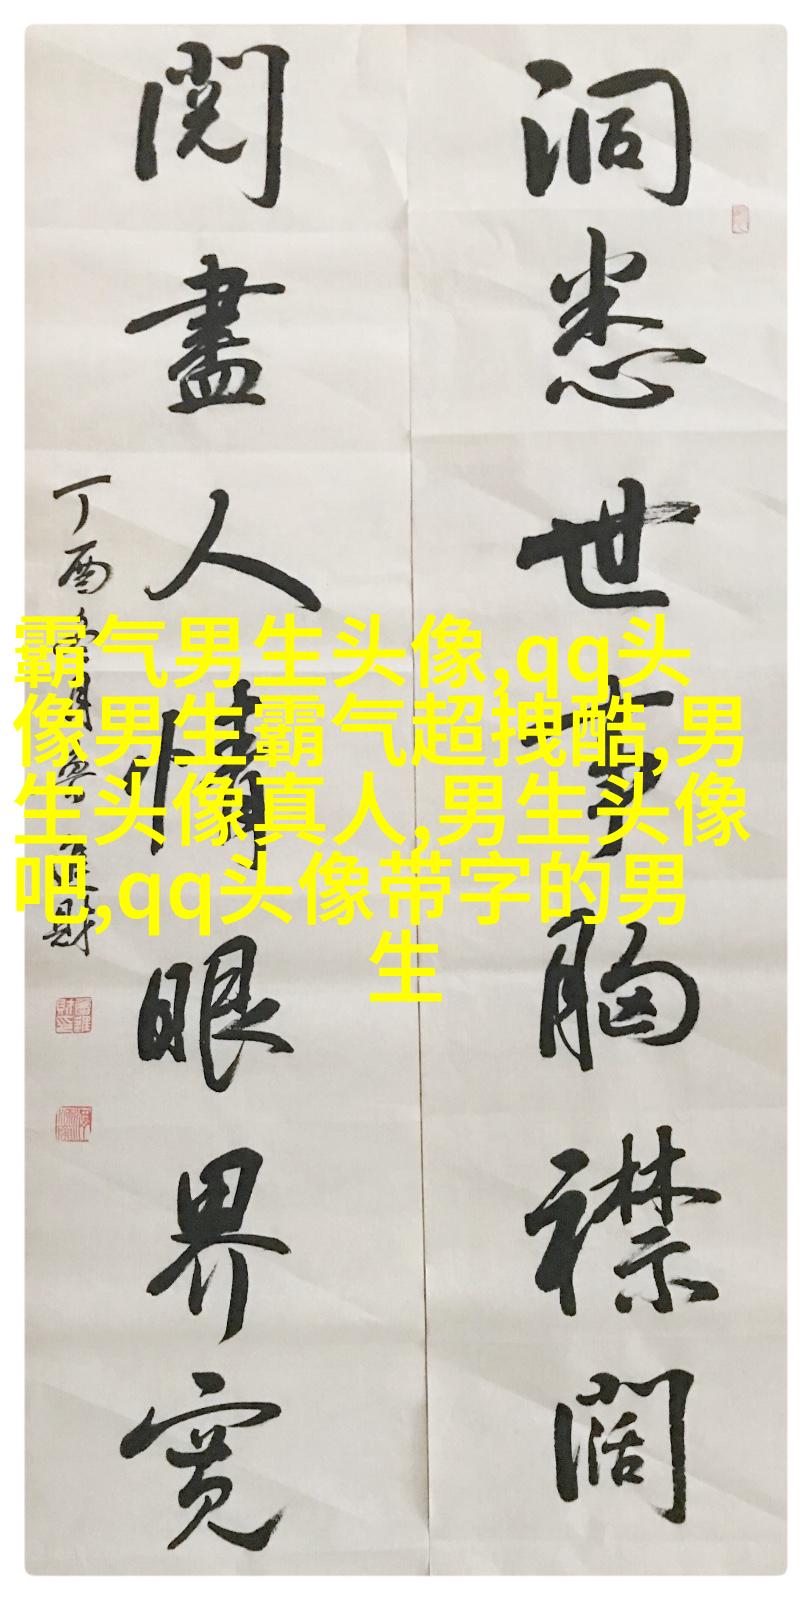 洞悉世事胸襟闊
閱盡人情眼界寬
丁酉
霸气男生头像,qq头
像男生霸气超拽酷,男
生头像真人,男生头像
吧,qq头像带字的男
生